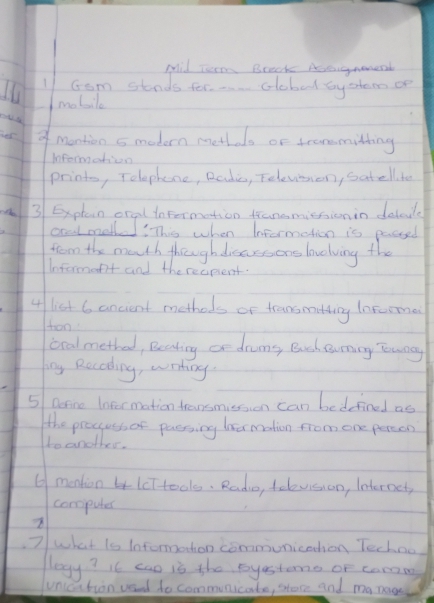 Mid Term Break Assignment
1 Gsm stands for ...... Global System of
mobile
2 Mention 5 modern methods of transmitting
Information
prints, Telephone, Radio, Television, Satellite
3 Explain oral Information transmission in details
oral method: This when Information is passed
from the mouth through discussions Involving the
Informant and the recipient.
4 list 6 ancient methods of transmitting Informa
tion
oral method, Beating of drums, Bush Burning
ing Recording, writing.
5 Define Information transmission can be defined as
the process of passing Information from one person
to another.
6 mention 4 ICT tools. Radio, television, Internet,
computer
7 What Is Information communication, Techno
logy? it can is the systems of comm
unication used to communicate, store and manage